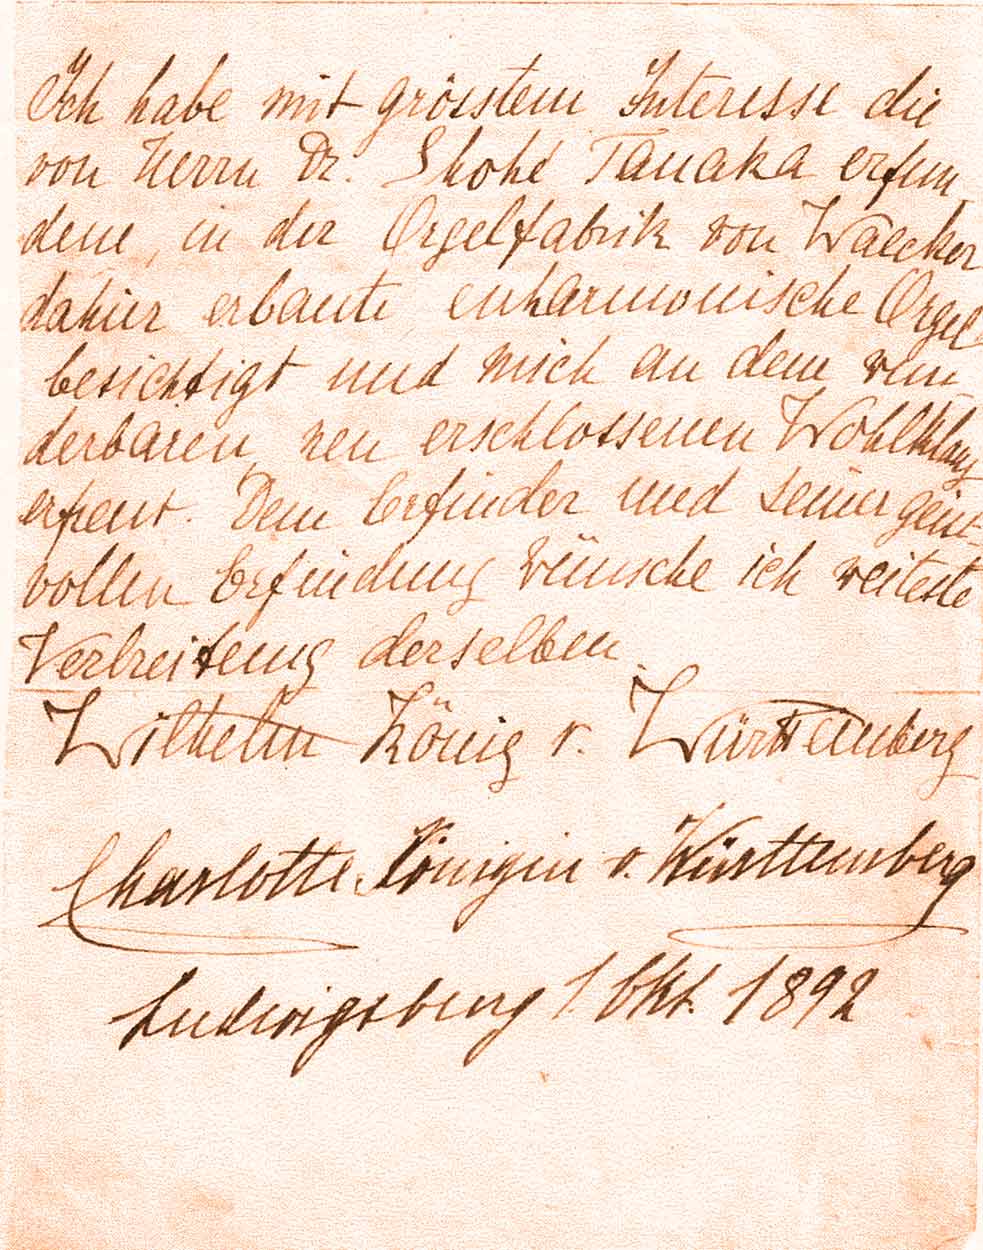 Ich habe mit grösstem Interesse die
von Herrn Dr. Shohé Tanaka erfun
dene, in der Orgelfabrik von Walcker
dahier erbaute enharmonische Orgel
besichtigt und mich an dem wun
derbaren neu erschlossenen Wohlklang
erfreut. Dem Erfinder und seiner geist-
vollen Erfindung wünsche ich weiteste
Verbreitung derselben.
Wilhelm König v. Württemberg
Charlotte, Königin v. Württemberg
Ludwigsburg 1. Okt. 1892